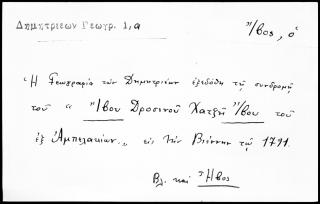 Δημητριέων Γεωγρ. 1,α
Ἴβος, ὁ
"Ἡ Γεωγραφία τῶν Δημητριέων ἐξεδόθη τῇ συνδρομῇ
τοῦ « Ἴβου Δροσινοῦ Χατζῆ Ἴβου τοῦ
ἐξ Ἀμπελακίων.» εἰς τὴν Βιέννην τῷ 1791.
Βλ. καὶ Ἤβος